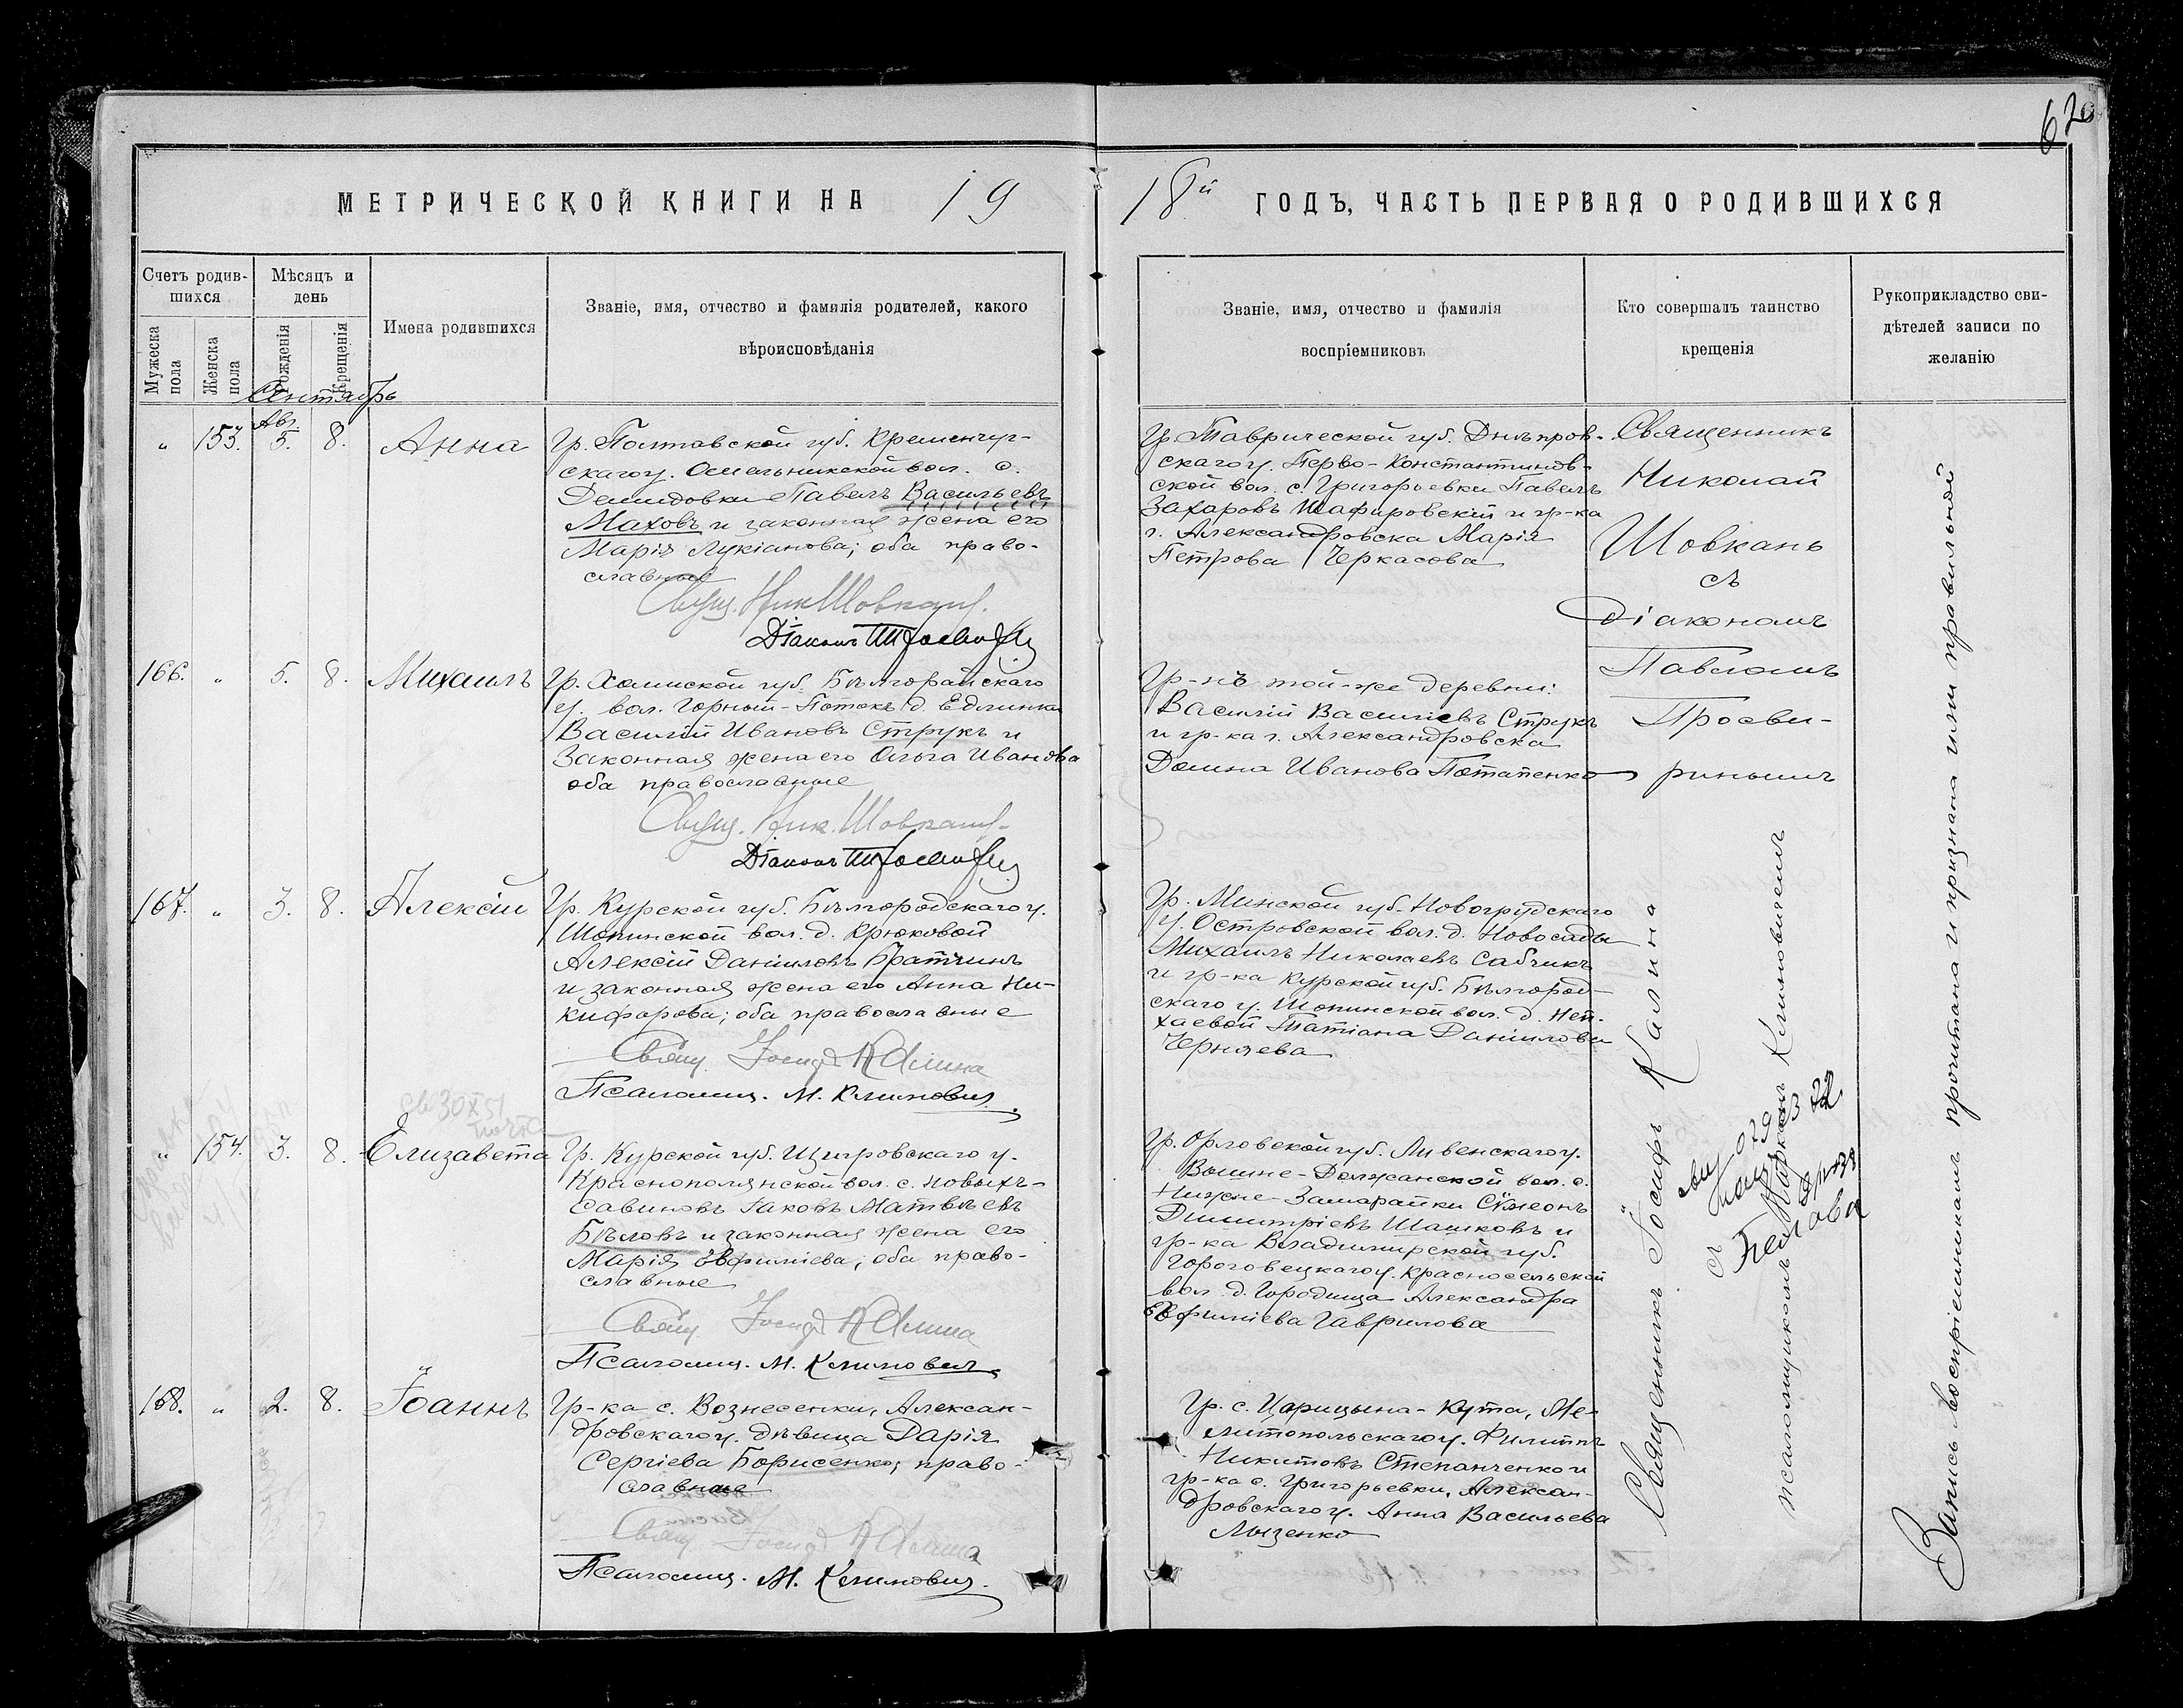 620
МЕТРИЧЕСКОЙ КНИГИ НА 19
18й ГОДЪ, ЧАСТЬ ПЕРВАЯ О РОДИВШИХСЯ
Счетъ родив-
шихся
Мужеска пола
Женска пола
Мѣсяцъ и
день
Рожденія
Крещенія
Имена родившихся
Званіе, имя, отчество и фамилія родителей, какого
вѣроисповѣданія
Званіе, имя, отчество и фамилія
воспріемниковъ
Кто совершалъ таинство
крещенія
Рукоприкладство сви-
дѣтелей записи по
желанію
Сентябрь
Авг.
" 153. 5. 8. Анна
Гр. Полтавской губ. Кременчуг-
скаго у. Омельникской вол. с.
Демидовки Павелъ Васильевъ
Маховъ и законная жена его
Марія Лукіанова; оба право-
славные
Свящ. Ник Шовкань.
Діаконъ
Гр. Таврической губ. Днѣпров-
скаго у. Перво-Константинов-
ской вол. с. Григорьевки Павелъ
Захаровъ Шафировскій и гр-ка
г. Александровска Марія
Петрова Черкасова
Священникъ
Николай
Шовкань
съ
Діакономъ
Павломъ
Просви-
ринымъ
166. " 5. 8. Михаилъ
Гр. Холмской губ. Бѣлгорайскаго
у. вол. Горный-Потокъ д. Едлинки
Василій Ивановъ Струкъ и
Законная жена его Ольга Иванова
оба православные
Свящ. Ник. Шовкань.
Діаконъ
Гр-нъ той-же деревни:
Василій Василіевъ Струкъ
и гр-ка г. Александровска
Домна Иванова Потапенко
167. " 3. 8. Алексій
Гр. Курской губ. Бѣлгородскаго у.
Шопинской вол. д. Крюковой
Алексій Даніиловъ Братчинъ
и законная жена его Анна Ни-
кифорова; оба православные
Свящ. Іосифъ Калина
Псаломщ. М. Климович.
Гр. Минской губ. Новогрудскаго
у. Островской вол. д. Новосады
Михаилъ Николаевъ Сабчикъ
и гр-ка Курской губ. Бѣлгород-
скаго у. Шопинской вол. д. Неп-
хаевой Татіана Даніилова
Черняева
30 XI 51
" 154. 3. 8. Елизавета
Гр. Курской губ. Щигровскаго у.
Краснополянской вол. с. Новыхъ-
Савиновъ Іаковъ Матвѣевъ
Бѣловъ и законная жена его
Марія Евфиміева, оба право-
славные
Свящ. Іосифъ Калина
Псаломщ. М. Климович.
Гр. Орловской губ. Ливенскаго у.
Вышне-Должанской вол. с.
Нижне-Замарайки Сѵмеонъ
Димитріевъ Шашковъ и
гр-ка Владимирской губ.
Гороговецкаго у. Красносельской
вол. д. Городища Александра
Евфиміева Гаврилова
168. " 2. 8. Іоаннъ
Гр-ка с. Вознесенки, Алексан-
дровскаго у. дѣвица Дарія
Сергіева Борисенко, право-
славные
Свящ. Іосифъ Калина
Псаломщ. М. Климович.
Гр. с. Царицына-Кута, Ме-
литопольскаго у. Филиппъ
Никитовъ Степанченко и
гр-ка с. Григорьевки, Алексан-
дровскаго у. Анна Васильева
Лызенко
Священникъ Іосифъ Калина
съ
псаломщикомъ Маркомъ Климовичемъ
Белова
Запись воспріемниками прочитана и признана ими правильной